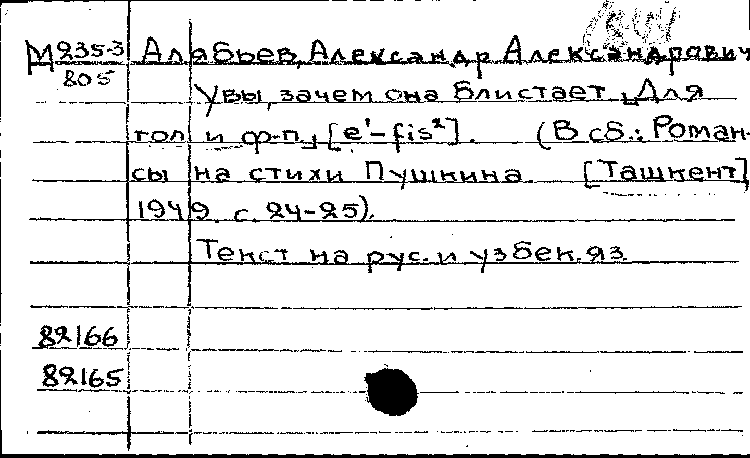 М 235-3 Алябьев, Александр Александрович
805
Увы, зачем она блистает. [Для
гол. и ф-п.], [e¹-fis²]. (В сб.: Роман-
сы на стихи Пушкина. [Ташкент],
1949. с. 24-25).
Текст на рус. и узбек. яз.
82166
82165